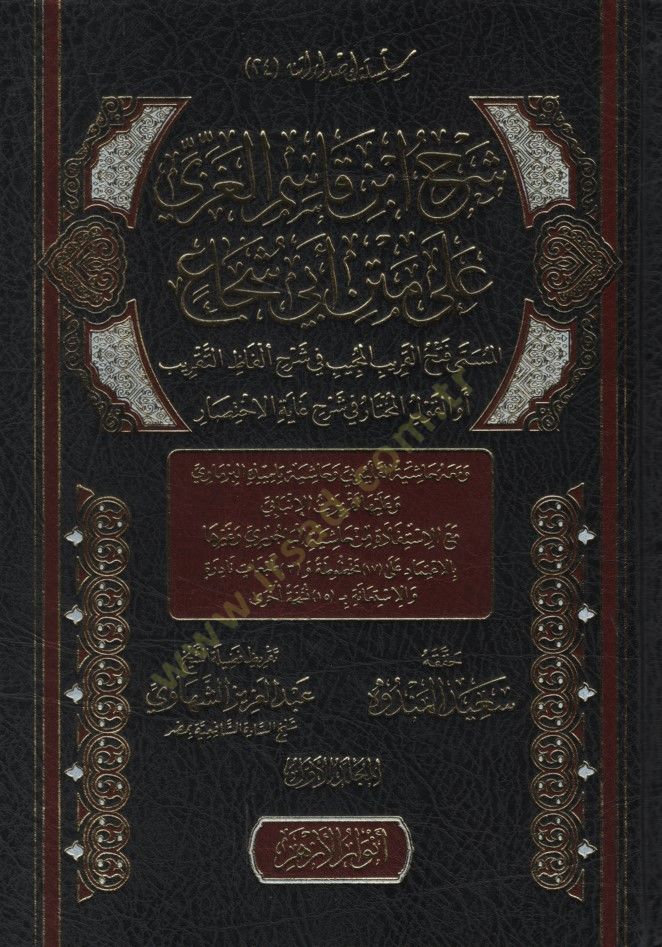 سلسلة إصداراتنا (٢٤)
شرح ابن قاسم الغزي
على متن أبي شجاع
المسمى فتح القريب المجيب في شرح ألفاظ التقريب
أو القول المختار في شرح غاية الاختصار
ومعه حاشية وحاشية تلميذه البرماوي
وعليهما الإنبابي
مع الاستفادة من وغيرها
بالاعتماد على (١٧) مخطوطة و نادرة
والاستعانة بـ (١٥) نسخة أخرى
حققه
سعيد المندوه
تقريظ فضيلة الشيخ
عبد العزيز الشهاوي
شيخ السادة الشافعية بمصر
المجلد الأول
أنوار الأزهر
www.irsad.com.tr